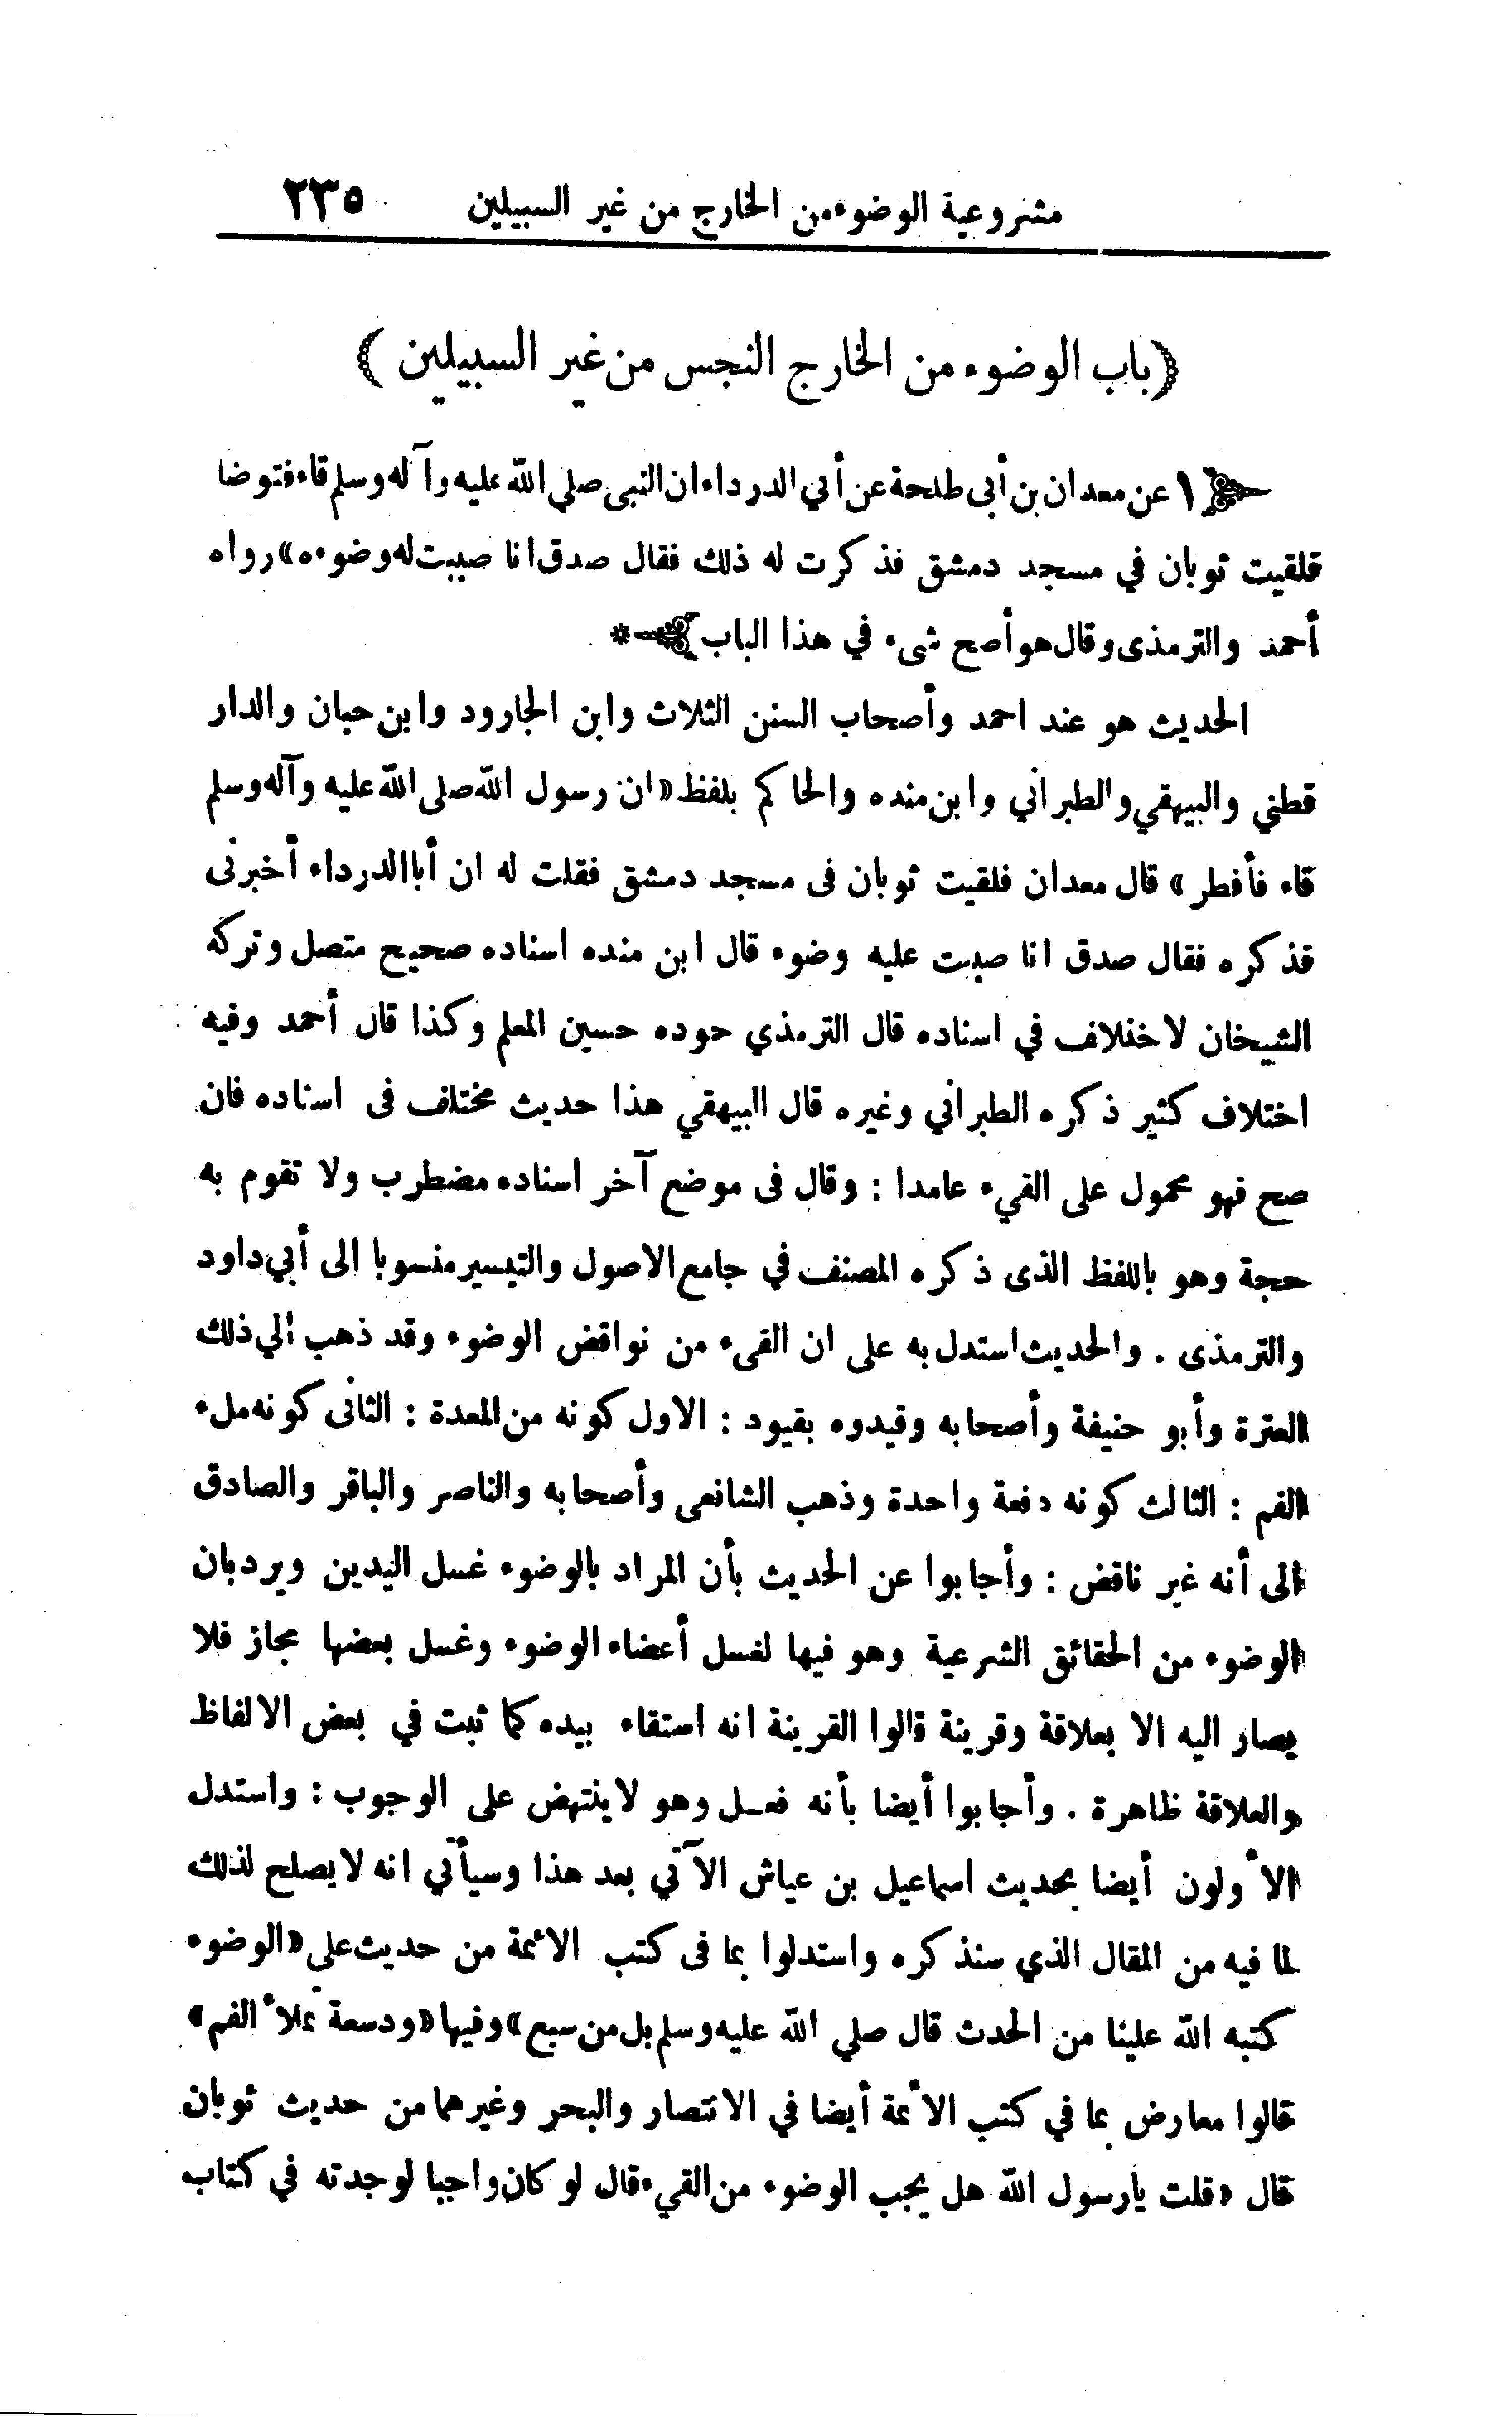 مشروعية الوضوء من الخارج من غير السبيلين ٢٣٥
﴿باب الوضوء من الخارج النجس من غير السبيلين﴾
١ عن معدان بن أبى طلحة عن أبي الدرداء ان النبى صلي الله عليه وآله وسلم قاء فتوضا
فلقيت ثوبان في مسجد دمشق فذكرت له ذلك فقال صدق انا صببت له وضوءه» رواه
أحمد والترمذى وقال هو أصح شىء في هذا الباب *
الحديث هو عند احمد وأصحاب السنن الثلاث وابن الجارود وابن حبان والدار
قطني والبيهقي والطبراني وابن منده والحاكم بلفظ «ان رسول الله صلى الله عليه وآله وسلم
قاء فأفطر» قال معدان فلقيت ثوبان فى مسجد دمشق فقلت له ان أبا الدرداء أخبرنى
فذكره فقال صدق انا صببت عليه وضوء قال ابن منده اسناده صحيح متصل وتركه
الشيخان لاختلاف في اسناده قال الترمذي جوده حسين المعلم وكذا قال أحمد وفيه
اختلاف كثير ذكره الطبراني وغيره قال البيهقي هذا حديث مختلف فى اسناده فان
صح فهو محمول على القيء عامدا : وقال فى موضع آخر اسناده مضطرب ولا تقوم به
حجة وهو باللفظ الذى ذكره المصنف في جامع الاصول والتيسير منسوبا الى أبي داود
والترمذى . والحديث استدل به على ان القىء من نواقض الوضوء وقد ذهب الي ذلك
العترة وأبو حنيفة وأصحابه وقيدوه بقيود : الاول كونه من المعدة : الثانى كونه ملء
الفم : الثالث كونه دفعة واحدة وذهب الشافعى وأصحابه والناصر والباقر والصادق
الى أنه غير ناقض : وأجابوا عن الحديث بأن المراد بالوضوء غسل اليدين ويرد بان
الوضوء من الحقائق الشرعية وهو فيها لغسل أعضاء الوضوء وغسل بعضها مجاز فلا
يصار اليه الا بعلاقة وقرينة قالوا القرينة انه استقاء بيده كما ثبت في بعض الالفاظ
والعلاقة ظاهرة . وأجابوا أيضا بأنه فعل وهو لا ينتهض على الوجوب : واستدل
الأولون أيضا بحديث اسماعيل بن عياش الآتي بعد هذا وسيأتي انه لا يصلح لذلك
لما فيه من المقال الذي سنذكره واستدلوا بما فى كتب الائمة من حديث علي «الوضوء
كتبه الله علينا من الحدث قال صلي الله عليه وسلم بل من سبع» وفيها «ودسعة تملأ الفم»
قالوا معارض بما في كتب الأئمة أيضا في الانتصار والبحر وغيرهما من حديث ثوبان
قال «قلت يارسول الله هل يجب الوضوء من القيء قال لو كان واجبا لوجدته في كتاب